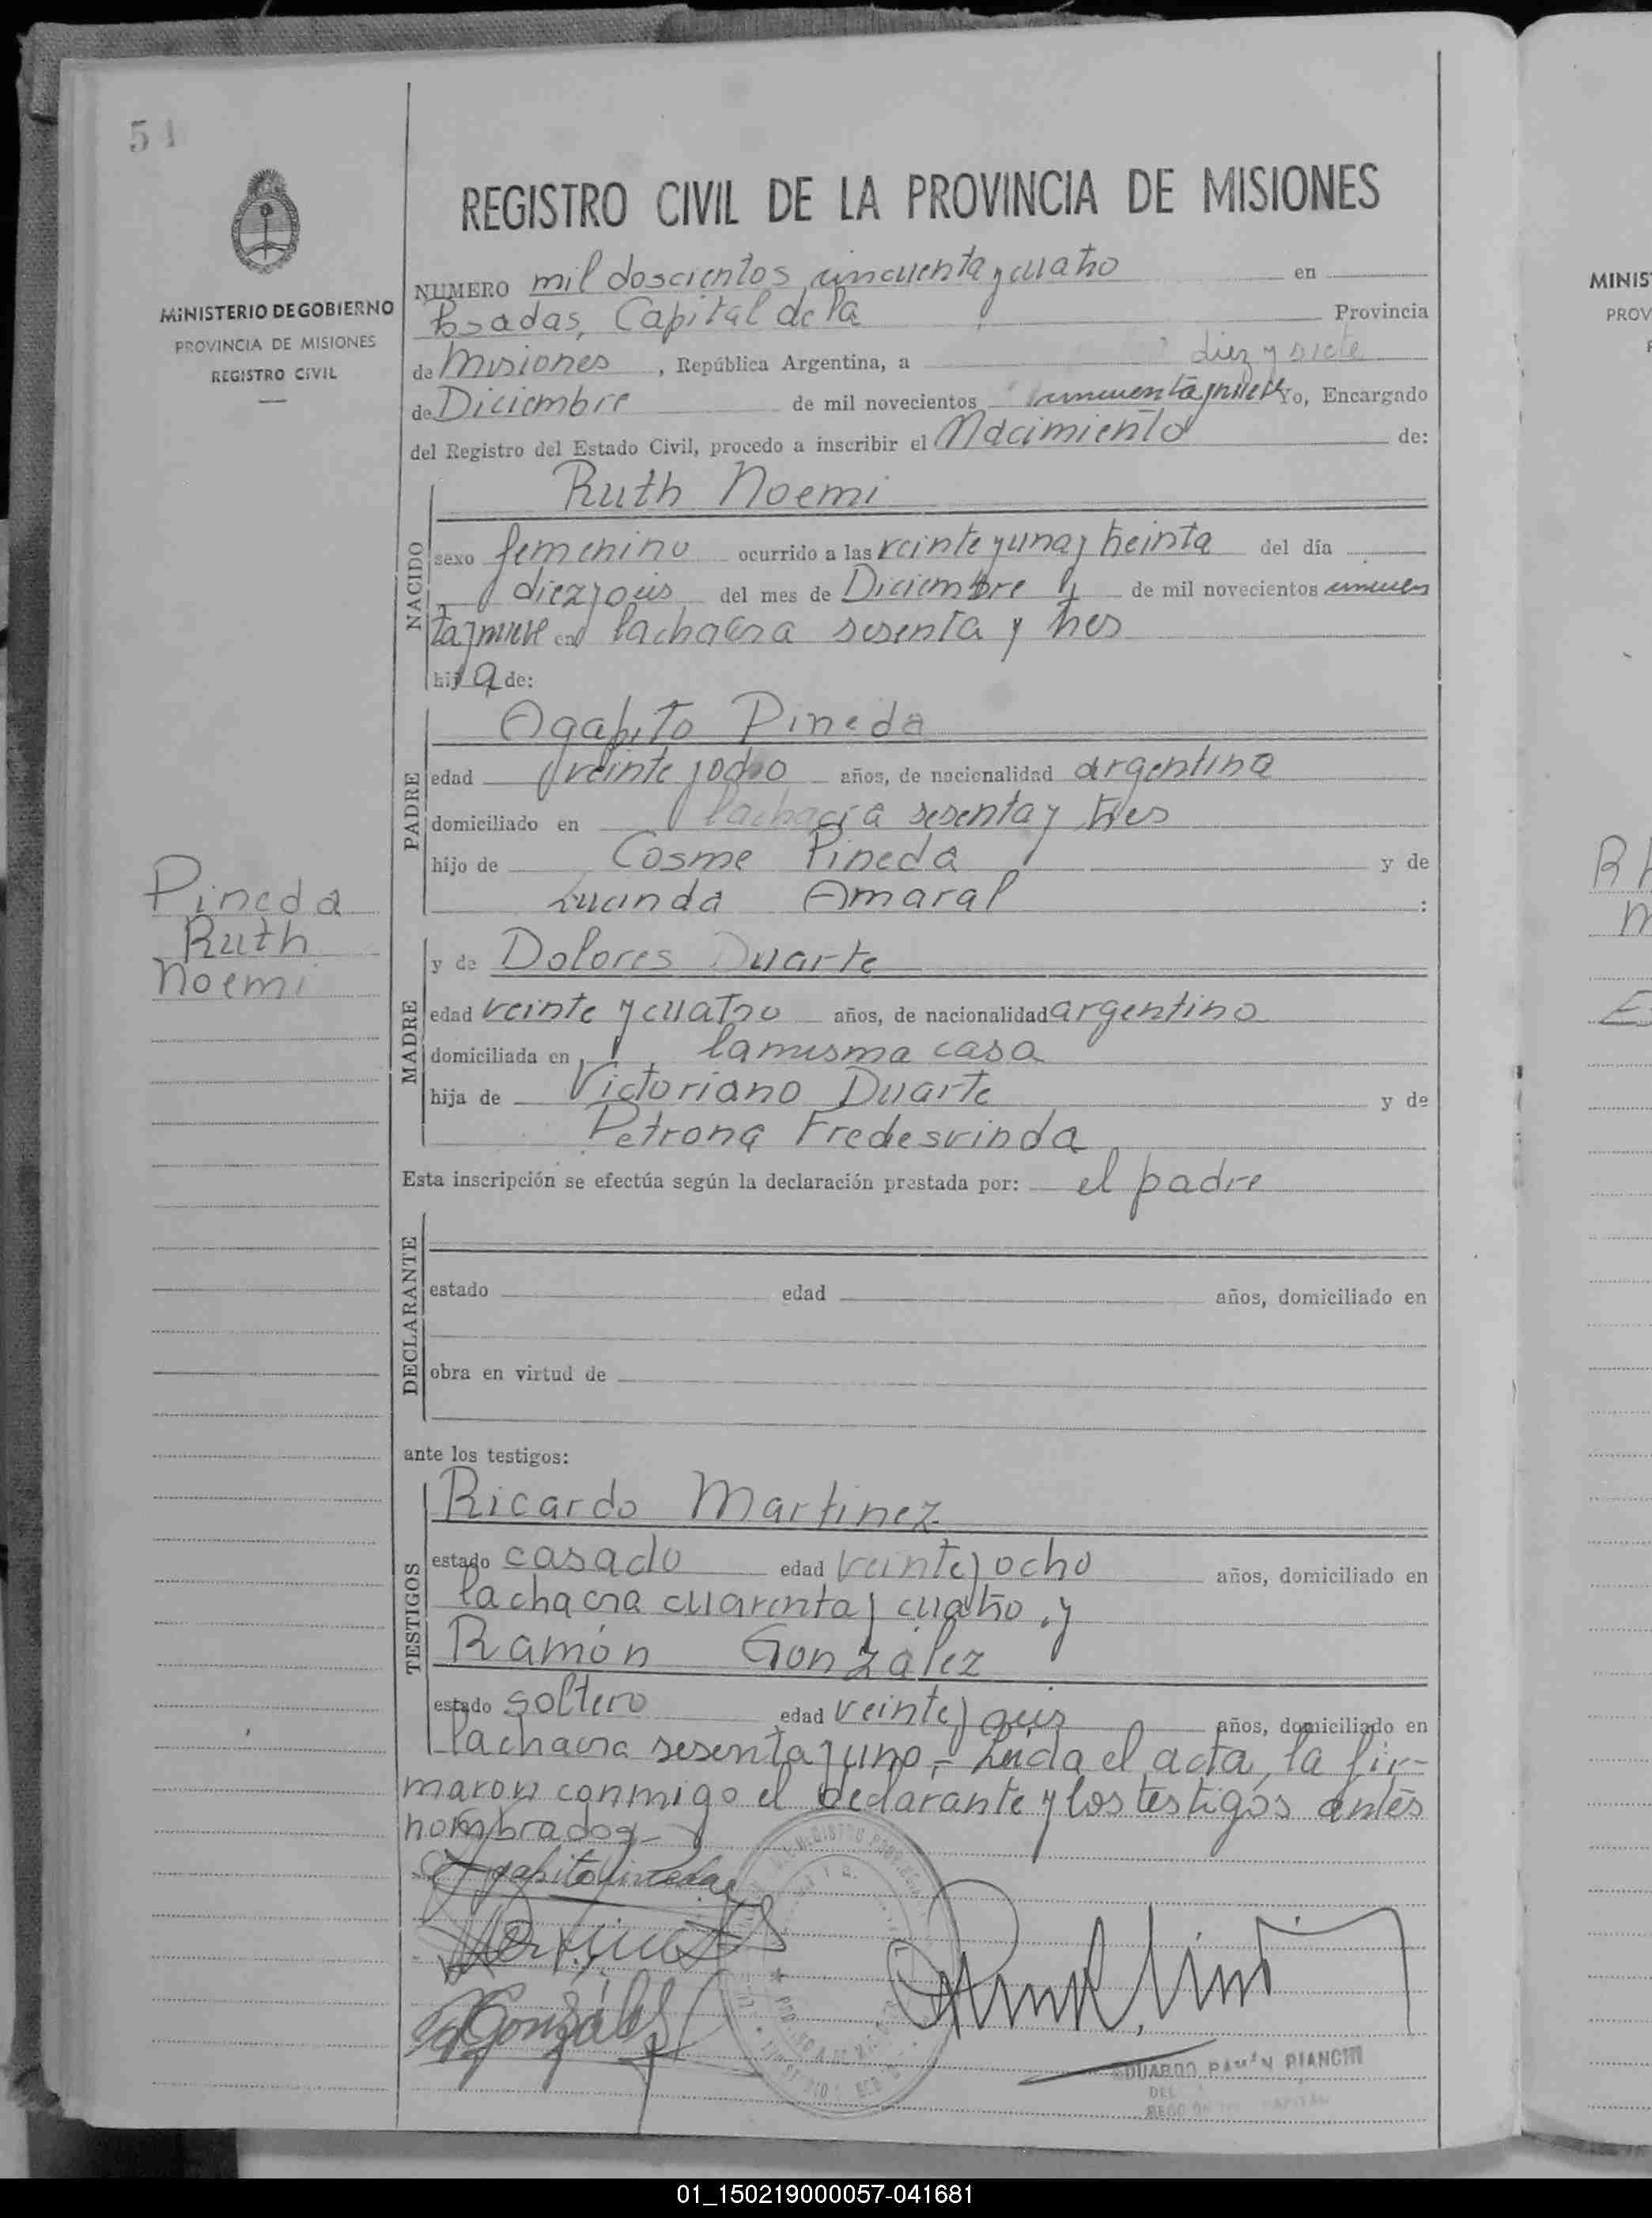 54
REGISTRO CIVIL DE LA PROVINCIA DE MISIONES
MINISTERIO DE GOBIERNO
PROVINCIA DE MISIONES
REGISTRO CIVIL
NUMERO mil doscientos cincuenta y cuatro en
Posadas, Capital de la Provincia
de Misiones, República Argentina, a diez y siete
de Diciembre de mil novecientos cincuenta y nueve Yo, Encargado
del Registro del Estado Civil, procedo a inscribir el Nacimiento de:
NACIDO
Ruth Noemi
sexo femenino ocurrido a las veinte y una y treinta del día
diez y seis del mes de Diciembre de mil novecientos cincuen
ta y nueve en la chacra sesenta y tres
hija de:
PADRE
Agapito Pineda
edad veinte y ocho años, de nacionalidad argentina
domiciliado en la chacra sesenta y tres
hijo de Cosme Pineda y de
Lucinda Amaral :
Pineda
Ruth
Noemi
MADRE
y de Dolores Duarte
edad veinte y cuatro años, de nacionalidad argentino
domiciliada en la misma casa
hija de Victoriano Duarte y de
Petrona Fredesvinda
Esta inscripción se efectúa según la declaración prestada por: el padre
DECLARANTE
estado edad años, domiciliado en
obra en virtud de
ante los testigos:
TESTIGOS
Ricardo Martinez
estado casado edad veinte y ocho años, domiciliado en
la chacra cuarenta y cuatro, y
Ramón González
estado soltero edad veinte y seis años, domiciliado en
la chacra sesenta y uno.- Leida el acta, la fir-
maron conmigo el declarante y los testigos antes
nombrados-
Agapito Pineda
González
EDUARDO RAMÓN BIANCHI
DEL
CAPITAL
MINIS
PROV
01_150219000057-041681